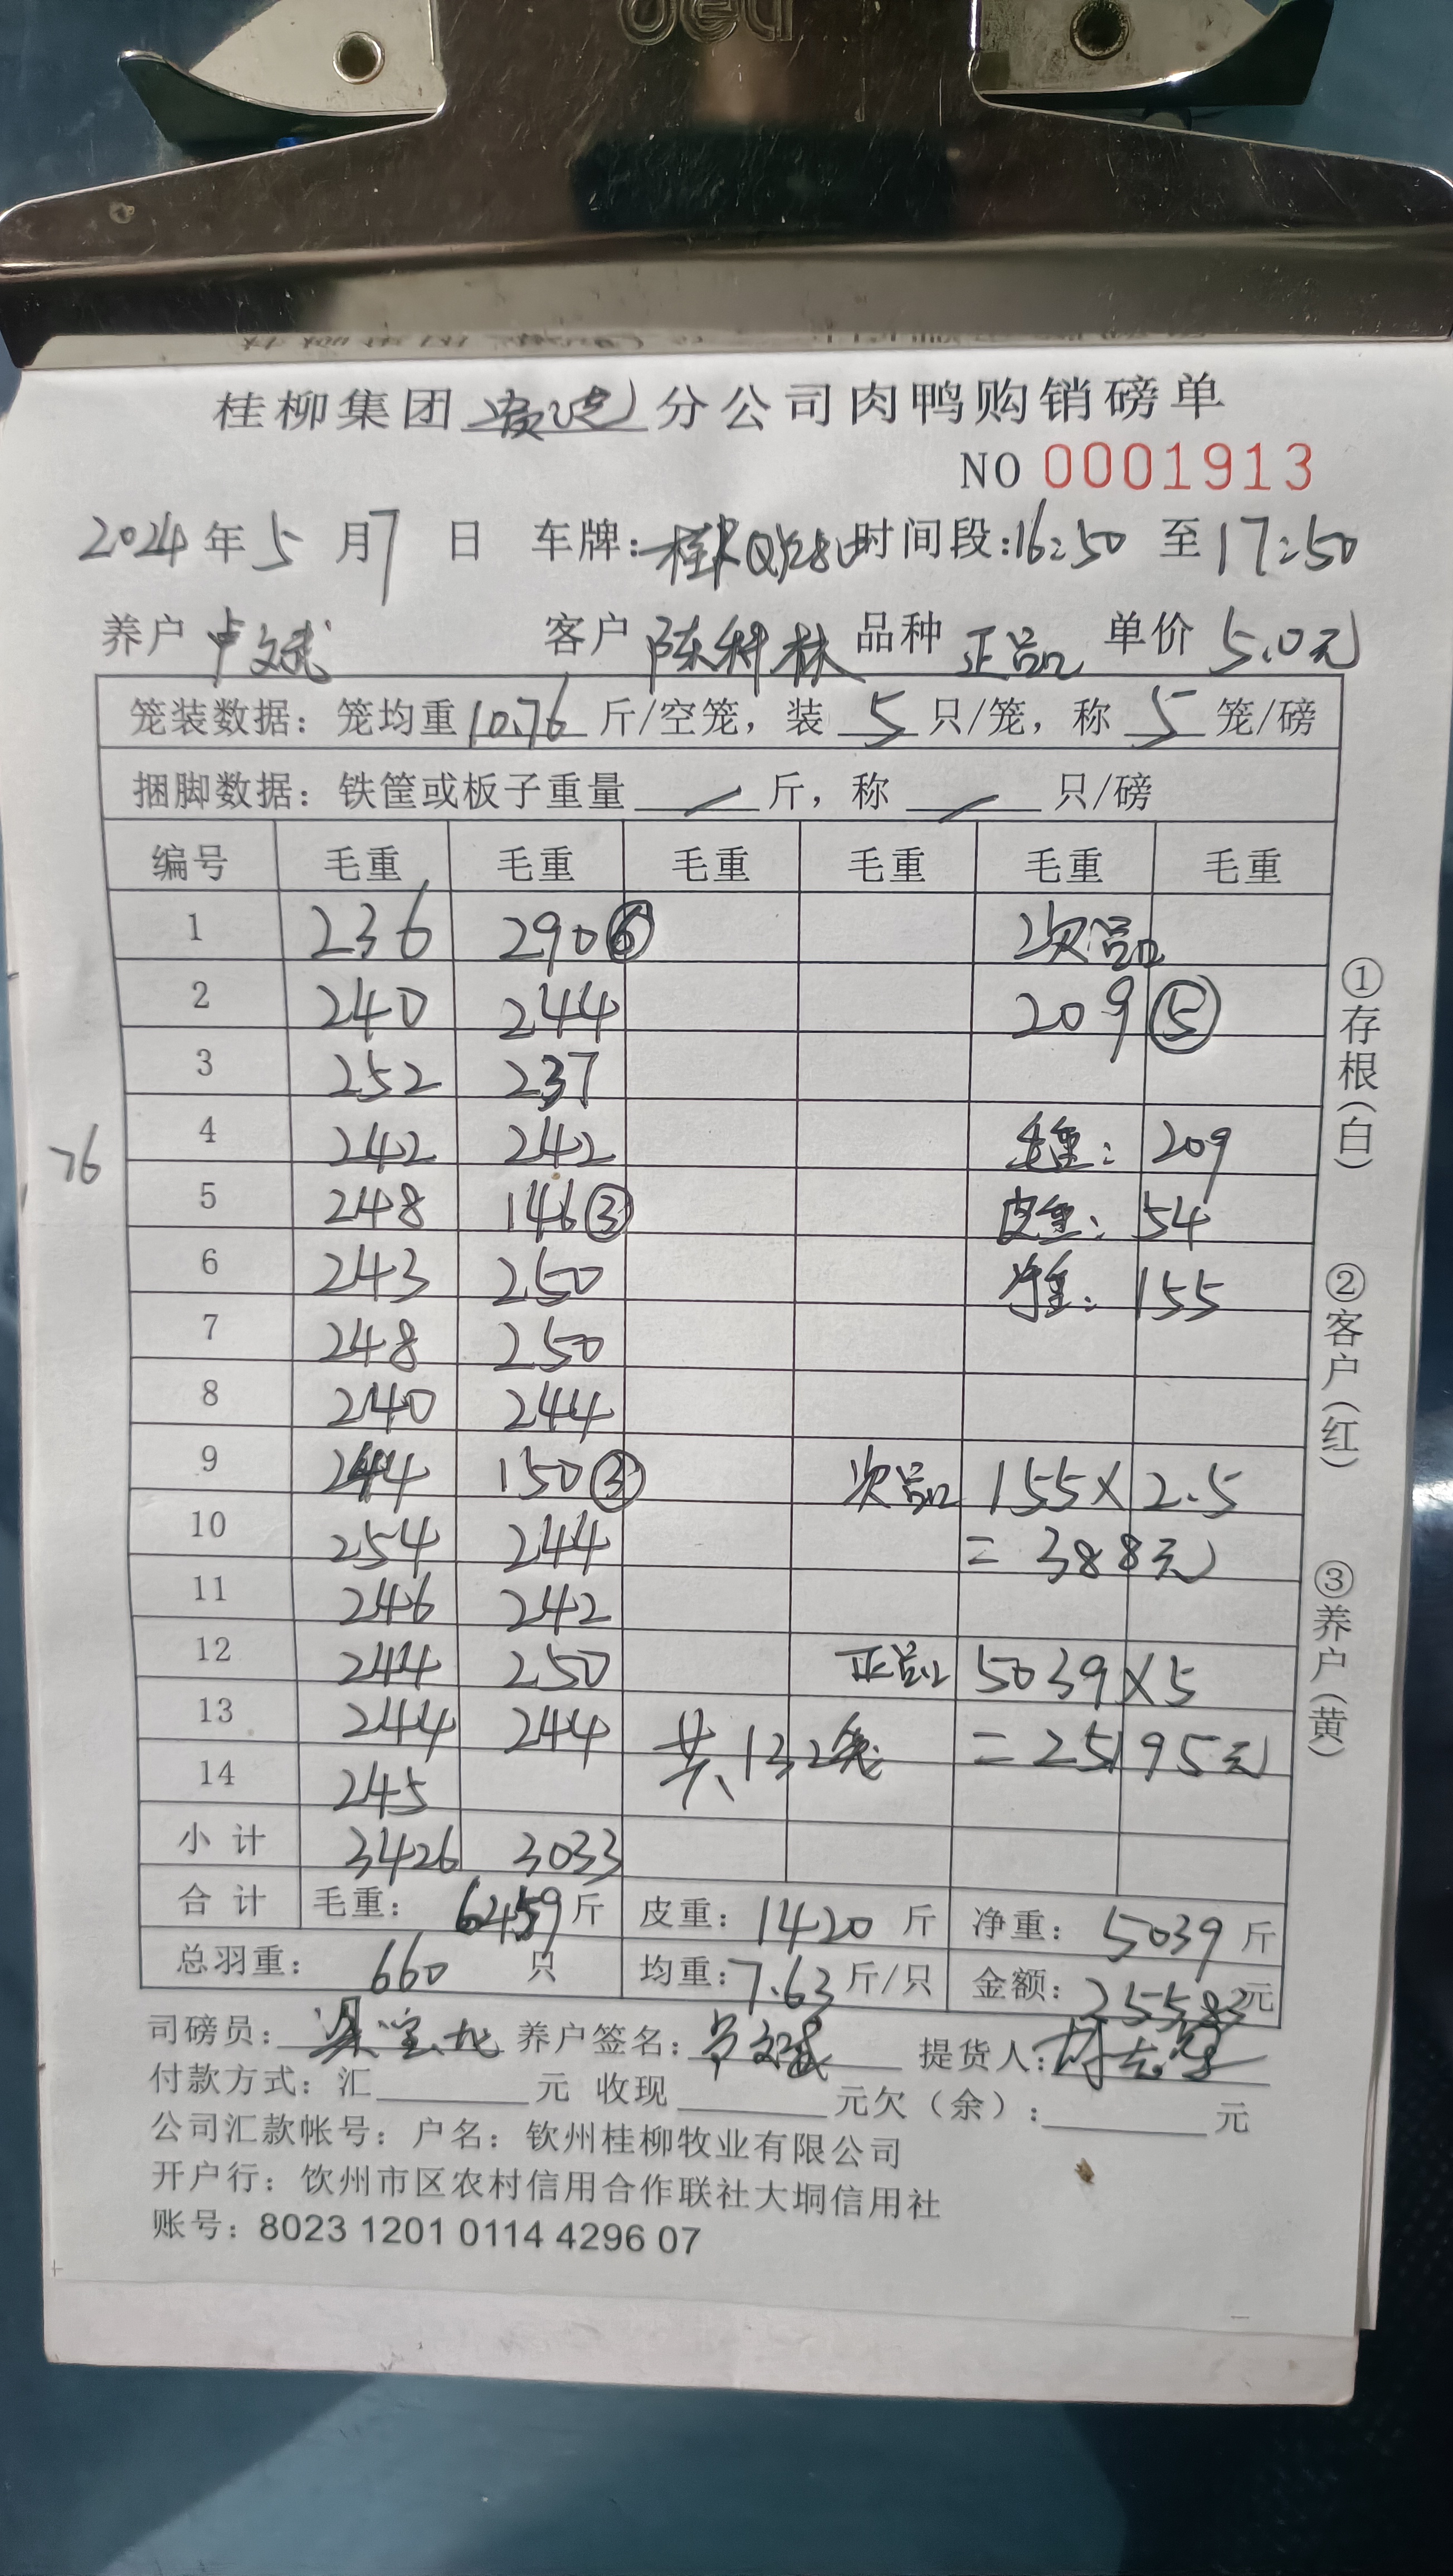 deli
桂柳集团 灵山 分公司肉鸭购销磅单
NO 0001913
2024 年 5 月 7 日 车牌: 时间段:16:50 至 17:50
养户 卢文斌 客户 陈科林 品种 正品 单价 5.0元
笼装数据：笼均重 10.76 斤/空笼，装 5 只/笼，称 5 笼/磅
捆脚数据：铁筐或板子重量 / 斤，称 / 只/磅
编号 毛重 毛重 毛重 毛重 毛重 毛重
1 236 290⑥ 次品
2 240 244 209⑤
3 252 237
76
4 242 242 毛重: 209
5 248 146③ 皮重: 54
6 243 250 净重: 155
7 248 250
8 240 244
9 244 150③ 次品 155×2.5
10 254 244 =388元
11 246 242
12 244 250 正品 5039×5
13 244 244 共132笼 =25195元
14 245
小计 3426 3033
合计 毛重: 6459斤 皮重: 1420 斤 净重: 5039 斤
总羽重: 660 只 均重:7.63斤/只 金额: 25583元
司磅员: 养户签名: 卢文斌 提货人:
付款方式：汇 元 收现 元欠（余）: 元
公司汇款帐号：户名：钦州桂柳牧业有限公司
开户行：饮州市区农村信用合作联社大垌信用社
账号：8023 1201 0114 4296 07
①存根(白)
②客户(红)
③养户(黄)